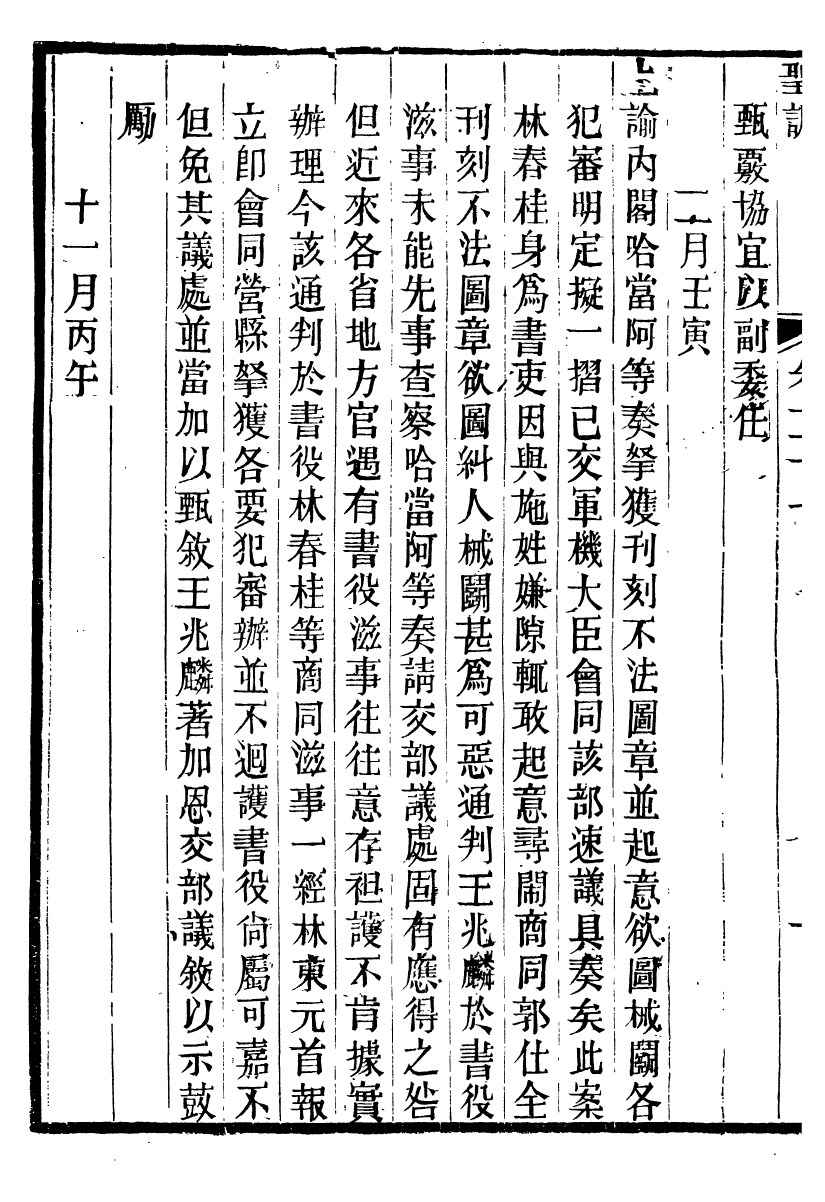 聖訓
甄覈協宜以副委任
二月壬寅
上諭內閣哈當阿等奏拏獲刊刻不法圖章並起意欲圖械鬭各
犯審明定擬一摺已交軍機大臣會同該部速議具奏矣此案
林春桂身爲書吏因與施姓嫌隙輒敢起意尋鬧商同郭仕全
刊刻不法圖章欲圖糾人械鬭甚爲可惡通判王兆麟於書役
滋事未能先事查察哈當阿等奏請交部議處固有應得之咎
但近來各省地方官遇有書役滋事往往意存袒護不肯據實
辦理今該通判於書役林春桂等商同滋事一經林東元首報
立即會同營縣拏獲各要犯審辦並不迴護書役尙屬可嘉不
但免其議處並當加以甄敘王兆麟著加恩交部議敘以示鼓
勵
十一月丙午